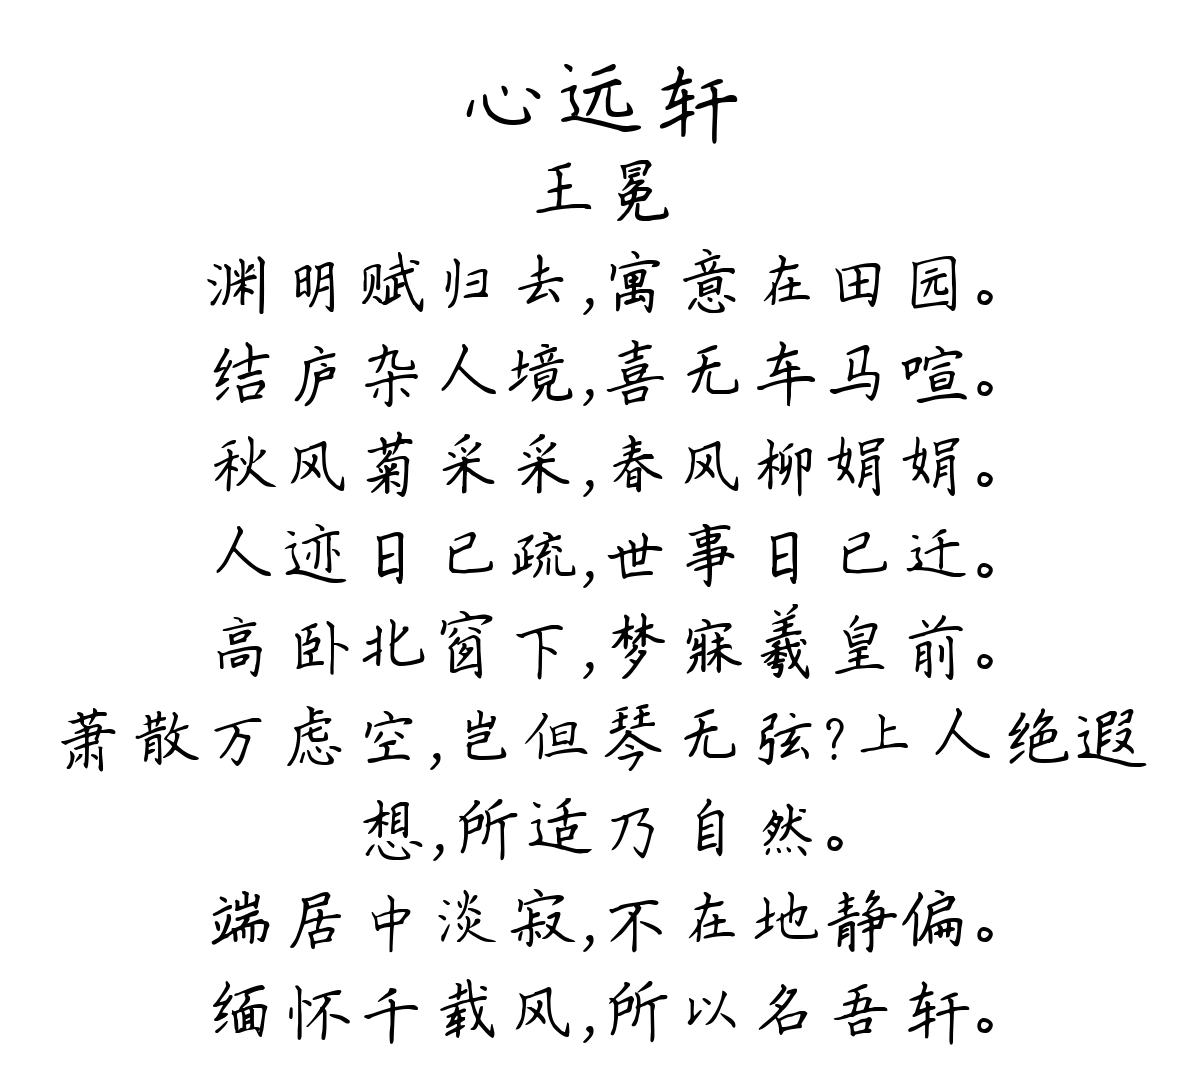 心远轩
王冕
渊明赋归去,寓意在田园。
结庐杂人境,喜无车马喧。
秋风菊采采,春风柳娟娟。
人迹日已疏,世事日已迁。
高卧北窗下,梦寐羲皇前。
萧散万虑空,岂但琴无弦?上人绝遐
想,所适乃自然。
端居中淡寂,不在地静偏。
缅怀千载风,所以名吾轩。